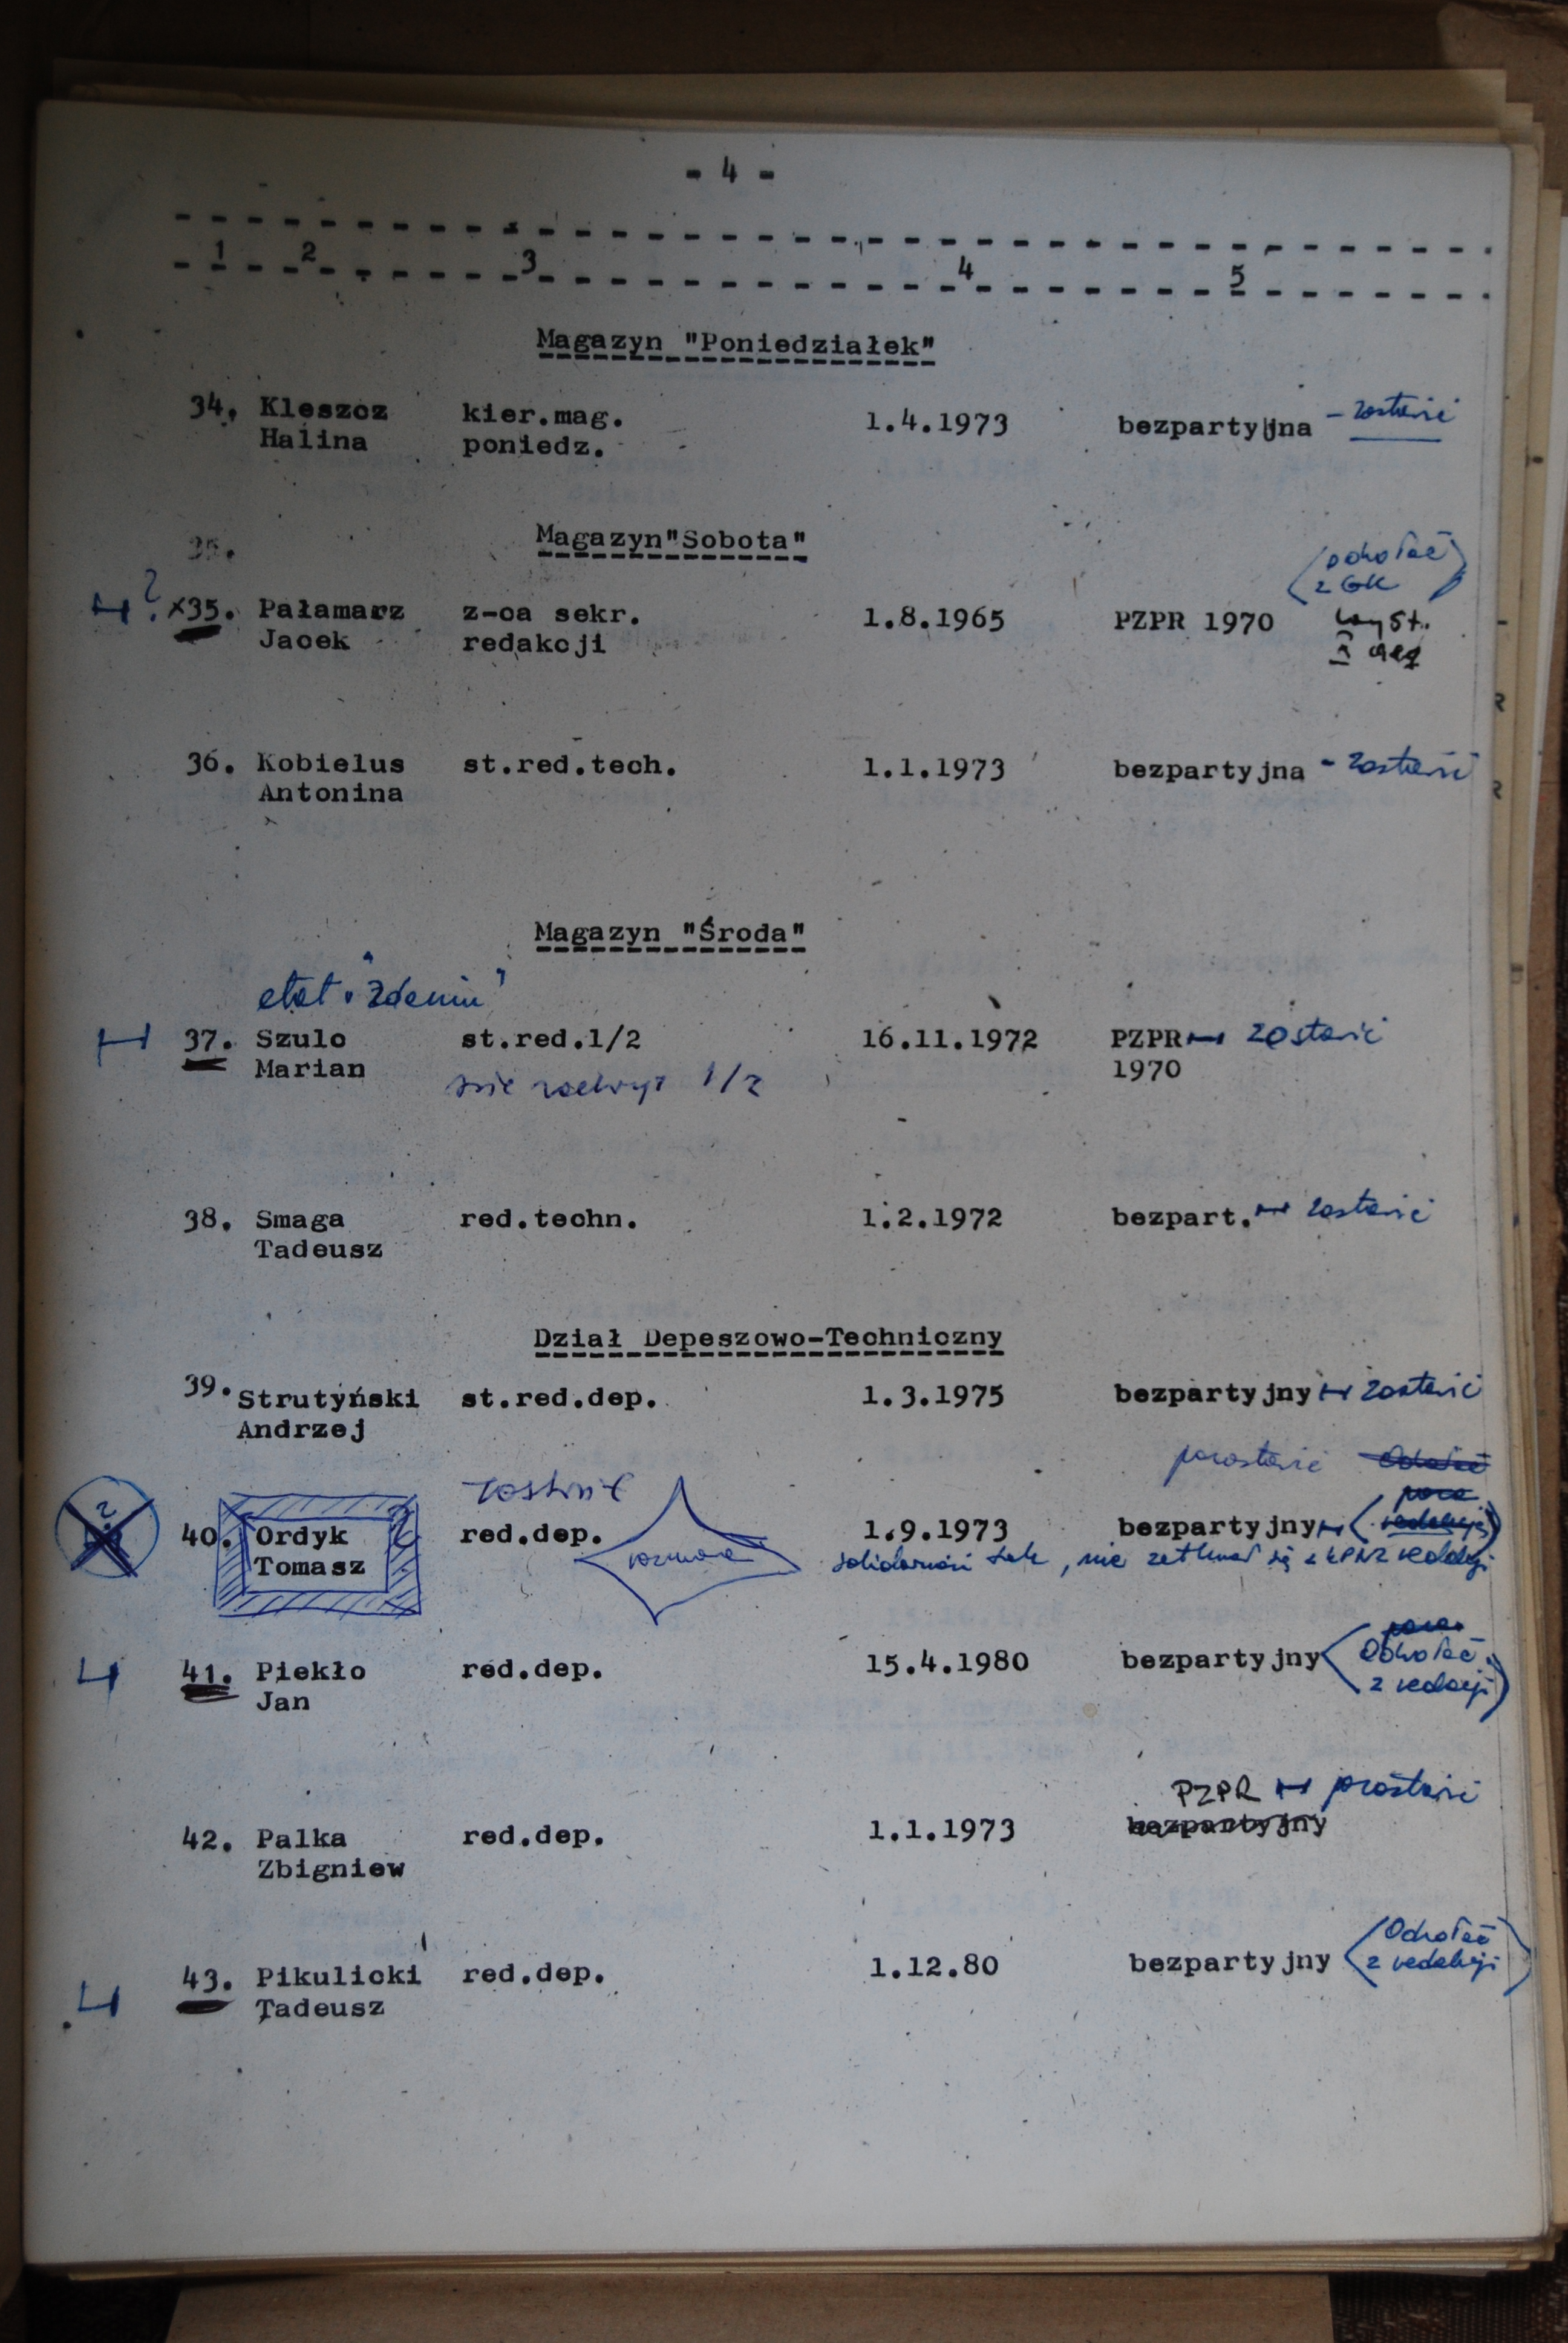 - 4 -
1 2 3 4 5
Magazyn "Poniedziałek"
34. Kleszcz kier.mag. 1.4.1973 bezpartyjna - zostawić
Halina poniedz.
35.
Magazyn"Sobota"
(odwołać
z GK)
? x35. Pałamarz z-ca sekr. 1.8.1965 PZPR 1970 wyst.
Jacek redakcji
36. Kobielus st.red.tech. 1.1.1973 bezpartyjna - zostawić
Antonina
Magazyn "Środa"
etat
37. Szulc st.red.1/2 16.11.1972 PZPR zostawić
Marian 1/2 1970
38. Smaga red.techn. 1.2.1972 bezpart. zostawić
Tadeusz
Dział Depeszowo-Techniczny
39. Strutyński st.red.dep. 1.3.1975 bezpartyjny zostawić
Andrzej
pozostawić
zostawić
40. Ordyk red.dep. 1.9.1973 bezpartyjny
Tomasz rozmowa nie z redakcji
41. Piekło red.dep. 15.4.1980 bezpartyjny Odwołać
Jan z redakcji
PZPR pozostawić
42. Palka red.dep. 1.1.1973 bezpartyjny
Zbigniew
Odwołać
43. Pikulicki red.dep. 1.12.80 bezpartyjny z redakcji
Tadeusz